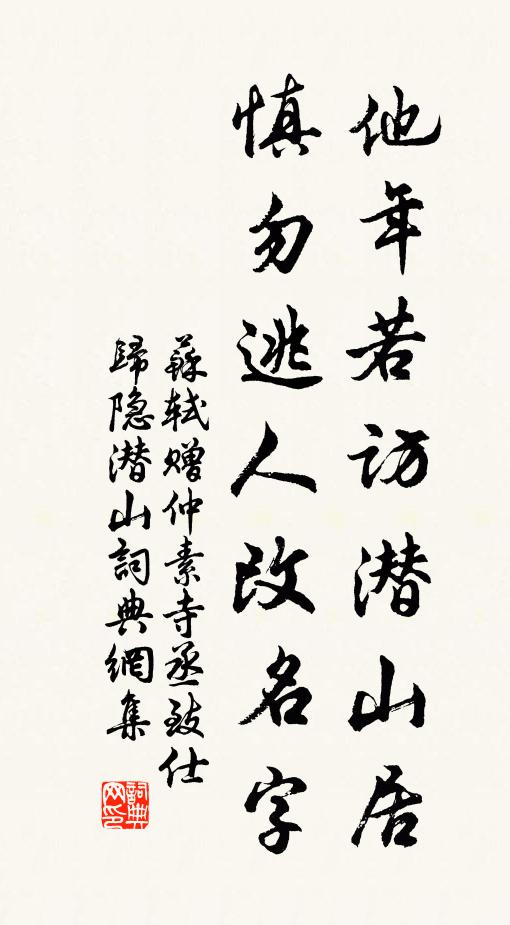 他年若访潜山居
慎勿逃人改名字
蘇軾赠仲素寺丞致仕
歸隐潜山詞典網集
詞典网印